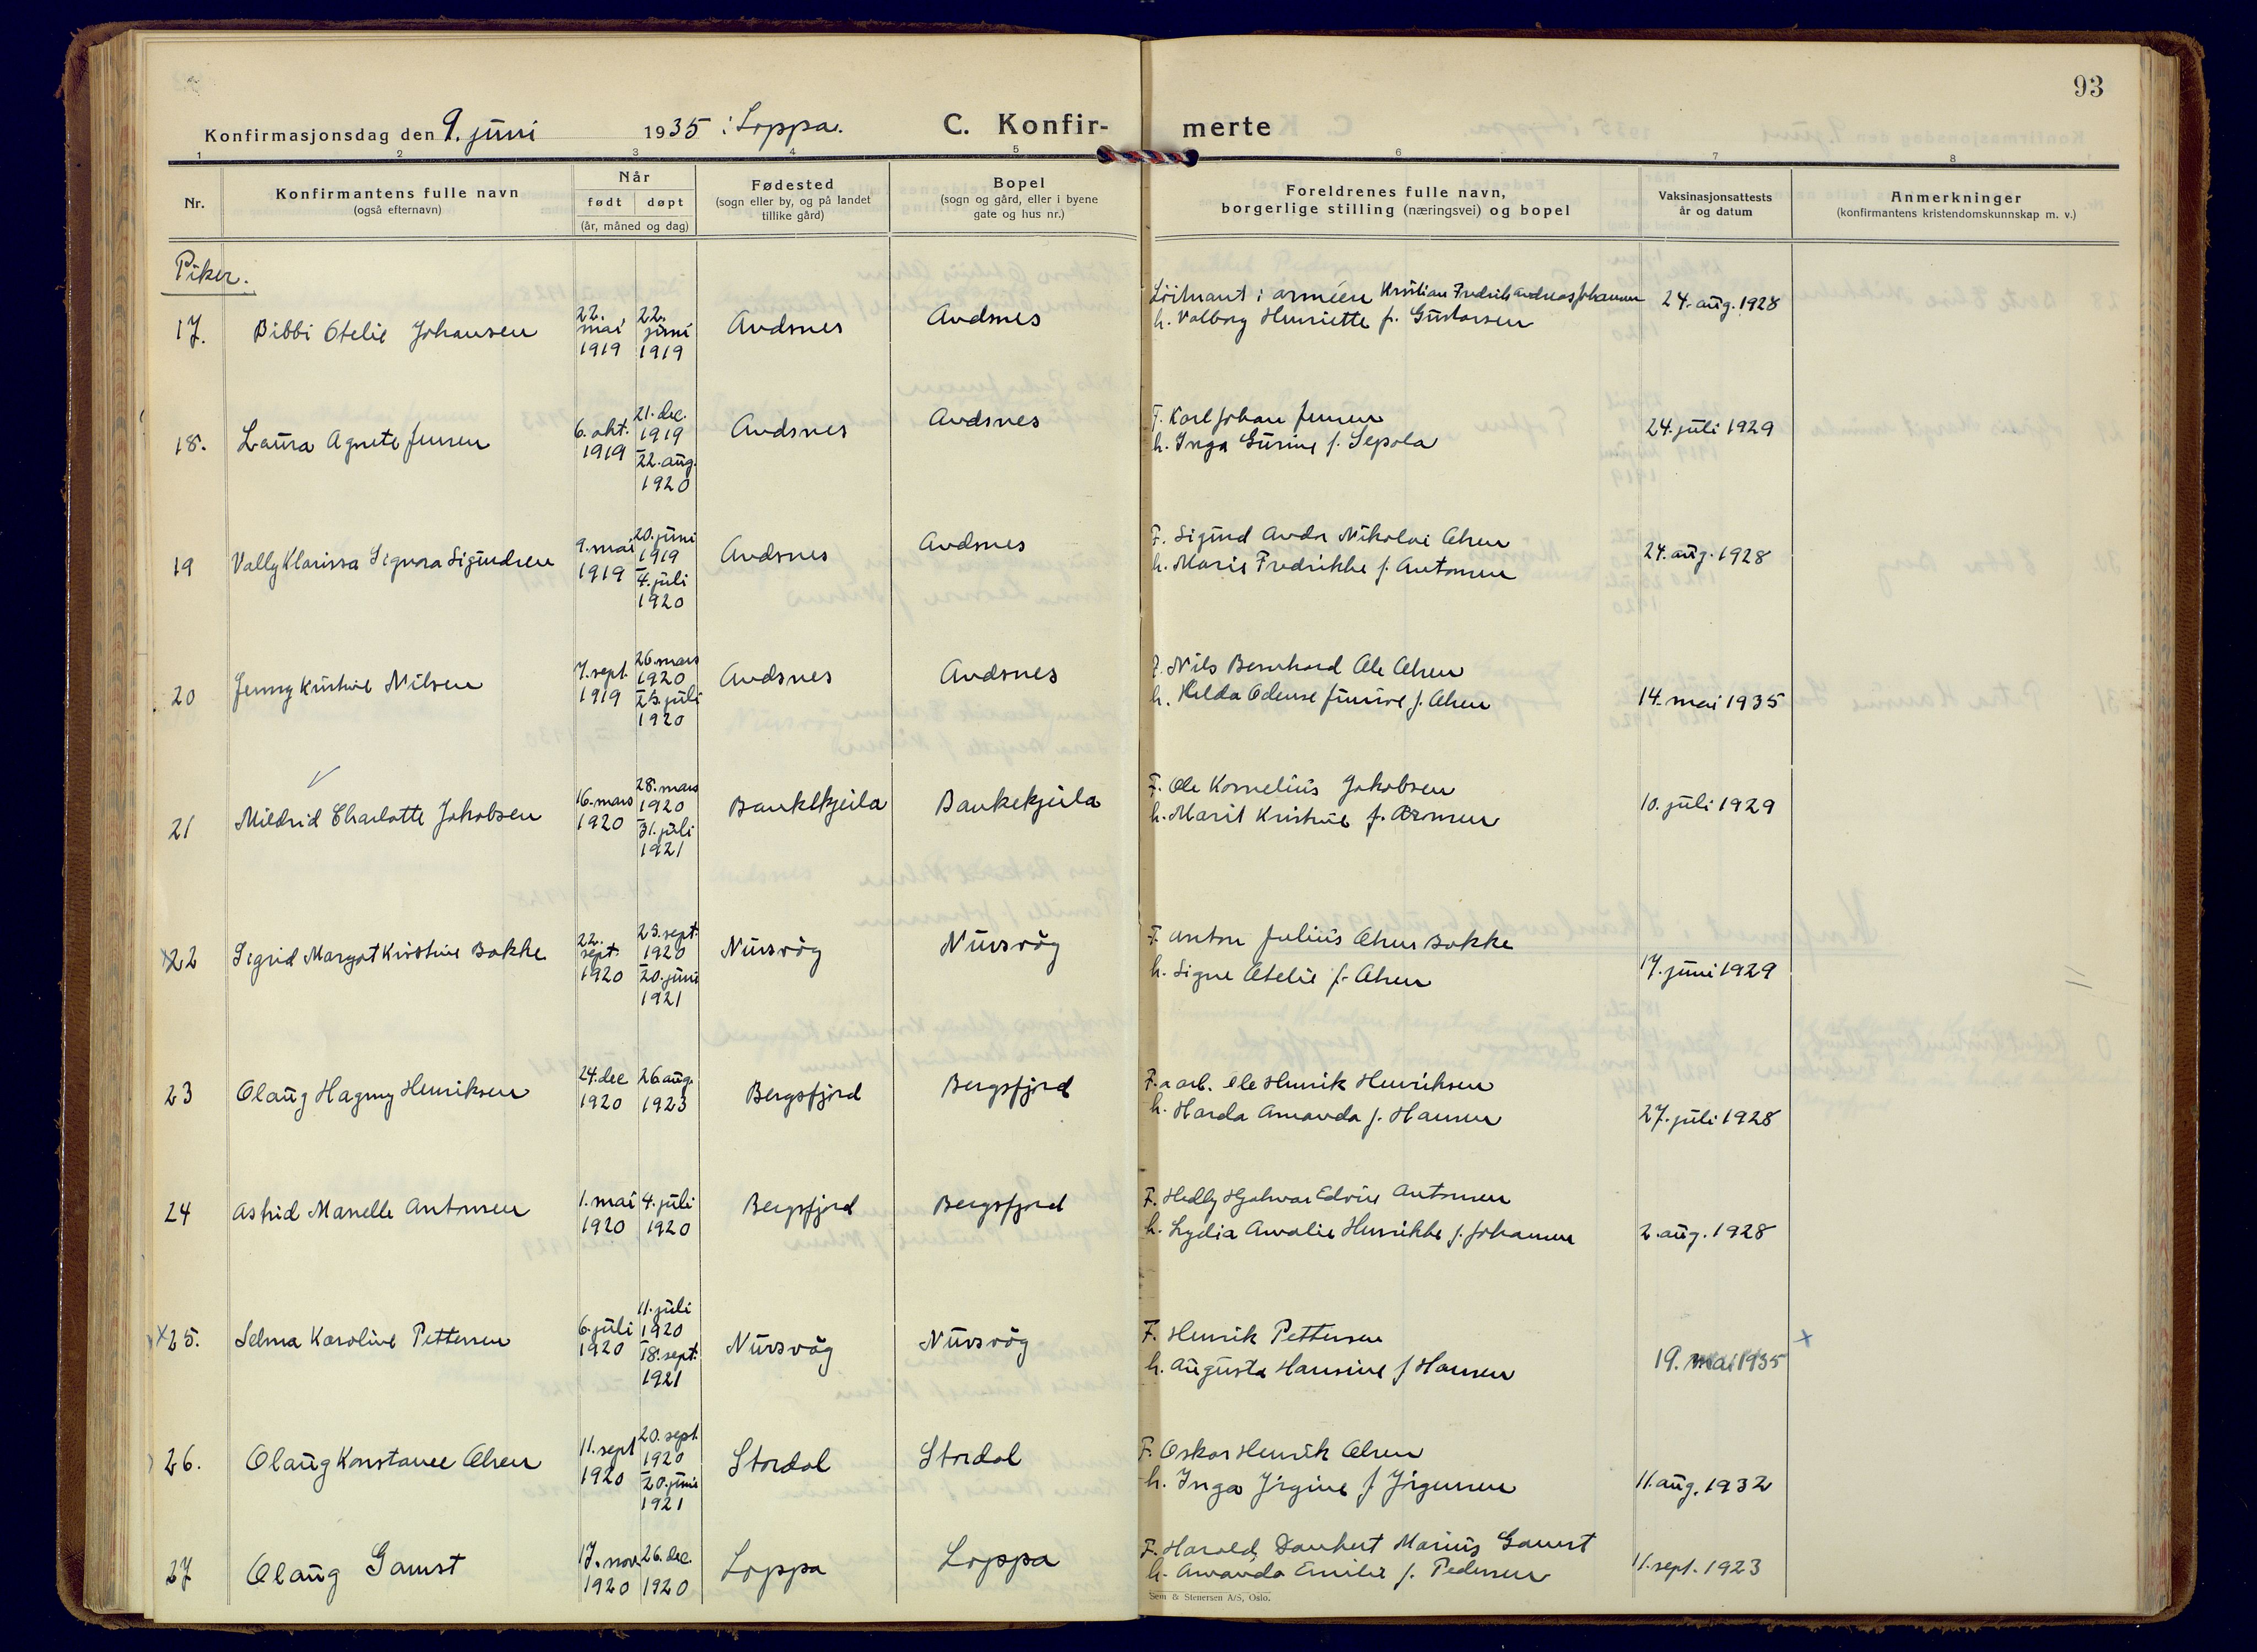 93
Konfirmasjonsdag den 9. juni 1935 i Loppa.
C. Konfir-merte
1 2 3 4 5 6 7 8
Nr.
Konfirmantens fulle navn
(også efternavn)
Når
født døpt
(år, måned og dag)
Fødested
(sogn eller by, og på landet
tillike gård)
Bopel
(sogn og gård, eller i byene
gate og hus nr.)
Foreldrenes fulle navn,
borgerlige stilling (næringsvei) og bopel
Vaksinasjonsattests
år og datum
Anmerkninger
(konfirmantens kristendomskunnskap m. v.)
Piker.
17. Bibbi Otelie Johansen 22. mai 1919 22. juni 1919 Andsnes Andsnes
Löitnant i armeen Kristian Fredrik Andreas Johansen 24. aug. 1928
h. Valborg Henriette f. Gustavsen
18. Laura Agnete Jensen 6. okt. 1919 21. dec. 1919 22. aug. 1920 Andsnes Andsnes
F. Karl Johan Jensen 24. juli 1929
h. Inga Gurine f. Sepola
19 Vally Klarissa Signora Sigundsen 9. mai 1919 20. juni 1919 4. juli 1920 Andsnes Andsnes
F. Sigund Andor Nikolai Olsen 24. aug. 1928
h. Marie Fredrikke f. Antonsen
20 Jenny Kristine Nilsen 7. sept. 1919 26. mars 1920 25. juli 1920 Andsnes Andsnes
F. Nils Bernhard Ole Olsen
h. Hilda Odense f. Olsen 14. mai 1935
21 Mildrid Charlotte Jakobsen 16. mars 1920 28. mars 1920 31. juli 1921 Bankekjeila Bankekjeila
F. Ole Kornelius Jakobsen 10. juli 1929
h. Marit Kristine f.
x22 Sigrid Margot Kristine Bakke 22. sept. 1920 25. sept. 1920 20. juni 1921 Nuvsvåg Nuvsvåg
F. Anton Julius Olsen Bakke
h. Signe Otelie f. Olsen 17. juni 1929
23 Olaug Hagny Henriksen 24. dec 1920 26 aug. 1923 Bergsfjord Bergsfjord
F. arb. Ole Henrik Henriksen
h. Harda Amanda f. Hansen 27. juli 1928
24 Astrid Manelle Antonsen 1. mai 1920 4. juli 1920 Bergsfjord Bergsfjord
F. Hedly Hjalmar Edvin Antonsen
h. Lydia Amalie Henrikke f. Johansen 2. aug. 1928
x25. Selma Karoline Pettersen 6. juli 1920 11. juli 1920 18. sept. 1921 Nuvsvåg Nuvsvåg
F. Henrik Pettersen x
h. Augusta Hansine f Hansen 19. mai 1935
26. Olaug Konstance Olsen 11. sept 1920 20. sept. 1920 20. juni 1921 Stordal Stordal
F. Oskar Henrik Olsen
h. Inga Jörgine f Jörgensen 11. aug. 1932
27 Olaug Gamst 17. nov. 1920 26. dec. 1920 Loppa Loppa
F. Harald Dankert Marius Gamst 11. sept. 1923
h. Amanda Emilie f. Pedersen
Sem & Stenersen A/S, Oslo.